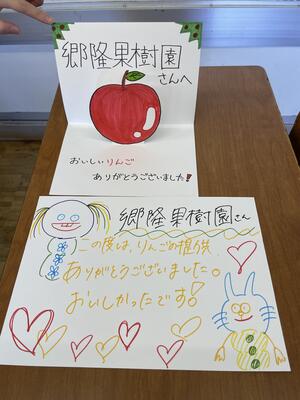 郷隆果樹園
さんへ
おいしいりんご
ありがとうございました!
郷隆果樹園さん
この度は、りんごの提供
ありがとうございました。
おいしかったです!